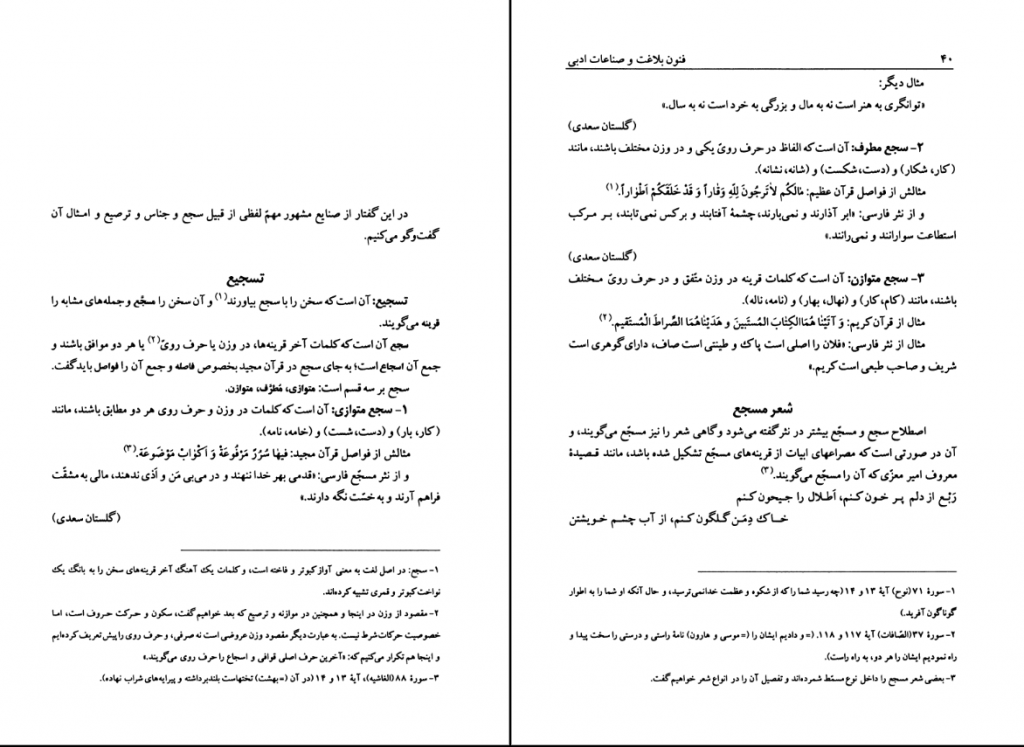 در این گفتار از صنایع مشهور مهمّ لفظی از قبیل سجع و جناس و ترصیع و امثال آن
گفت‌وگو می‌کنیم.
تسجیع
تسجیع: آن است که سخن را با سجع بیاورند(۱) و آن سخن را مسجّع و جمله‌های مشابه را
قرینه می‌گویند.
سجع آن است که کلمات آخر قرینه‌ها، در وزن یا حرف رویّ(۲) یا هر دو موافق باشند و
جمع آن اسجاع است؛ به جای سجع در قرآن مجید بخصوص فاصله و جمع آن را فواصل باید گفت.
سجع بر سه قسم است: متوازی، مُطرَّف، متوازن.
۱- سجع متوازی: آن است که کلمات در وزن و حرف روی هر دو مطابق باشند، مانند
(کار، بار) و (دست، شست) و (خامه، نامه).
مثالش از فواصل قرآن مجید: فیهٰا سُرُرٌ مَرْفُوعَةٌ وَ اَکْوٰابٌ مَوْضُوعَةٌ.(۳)
و از نثر مسجّع فارسی: «قدمی بهر خدا ننهند و در می‌بی مَن و اَذی ندهند، مالی به مشقّت
فراهم آرند و به خسّت نگه دارند.»
(گلستان سعدی)
۱- سجع: در اصل لغت به معنی آواز کبوتر و فاخته است، و کلمات یک آهنگ آخر قرینه‌های سخن را به بانگ یک
نواخت کبوتر و قمری تشبیه کرده‌اند.
۲- مقصود از وزن در اینجا و همچنین در موازنه و ترصیع که بعد خواهیم گفت، سکون و حرکت حروف است، اما
خصوصیت حرکات شرط نیست. به عبارت دیگر مقصود وزن عروضی است نه صرفی، و حرف روی را پیش تعریف کرده‌ایم
و اینجا هم تکرار می‌کنیم که: «آخرین حرف اصلی قوافی و اسجاع را حرف روی می‌گویند.»
۳- سورهٔ ۸۸ (الغاشیه)، آیهٔ ۱۳ و ۱۴ (در آن (= بهشت) تختهاست بلند برداشته و پیرایه‌های شراب نهاده).
۴۰ فنون بلاغت و صناعات ادبی
مثال دیگر:
«توانگری به هنر است نه به مال و بزرگی به خرد است نه به سال.»
(گلستان سعدی)
۲- سجع مطرف: آن است که الفاظ در حرف رویّ یکی و در وزن مختلف باشند، مانند
(کار، شکار) و (دست، شکست) و (شانه، نشانه).
مثالش از فواصل قرآن عظیم: مٰالَکُم لاٰتَرجُونَ لِلّٰهِ وَقٰاراً وَ قَدْ خَلَقَکُمْ اَطْوٰاراً.(۱)
و از نثر فارسی: «ابر آذارند و نمی‌بارند، چشمهٔ آفتابند و برکس نمی‌تابند، بر مرکب
استطاعت سوارانند و نمی‌رانند.»
(گلستان سعدی)
۳- سجع متوازن: آن است که کلمات قرینه در وزن متّفق و در حرف رویّ مختلف
باشند، مانند (کام، کار) و (نهال، بهار) و (نامه، ناله).
مثال از قرآن کریم: وَ آتَیْنٰا هُمَاالکِتٰابَ المُسْتَبینَ وَ هَدَیْنٰاهُمَا الصِّراطَ الْمُسْتَقیم.(۲)
مثال از نثر فارسی: «فلان را اصلی است پاک و طینتی است صاف، دارای گوهری است
شریف و صاحب طبعی است کریم.»
شعر مسجع
اصطلاح سجع و مسجّع بیشتر در نثر گفته می‌شود و گاهی شعر را نیز مسجّع می‌گویند، و
آن در صورتی است که مصراعهای ابیات از قرینه‌های مسجّع تشکیل شده باشد، مانند قصیدهٔ
معروف امیر معزّی که آن را مسجّع می‌گویند.(۳)
رَبْع از دلم پر خون کنم، اَطلال را جیحون کنم
خاک دِمَن گلگون کنم، از آب چشم خویشتن
۱- سورهٔ ۷۱ (نوح) آیهٔ ۱۳ و ۱۴ (چه رسید شما را که از شکوه و عظمت خدا نمی‌ترسید، و حال آنکه او شما را به اطوار
گوناگون آفرید.)
۲- سورهٔ ۳۷ (الصّافات) آیهٔ ۱۱۷ و ۱۱۸. (= و دادیم ایشان را (= موسی و هارون) نامهٔ راستی و درستی را سخت پیدا و
راه نمودیم ایشان را هر دو، به راه راست).
۳- بعضی شعر مسجع را داخل نوع مسمّط شمرده‌اند و تفصیل آن را در انواع شعر خواهیم گفت.